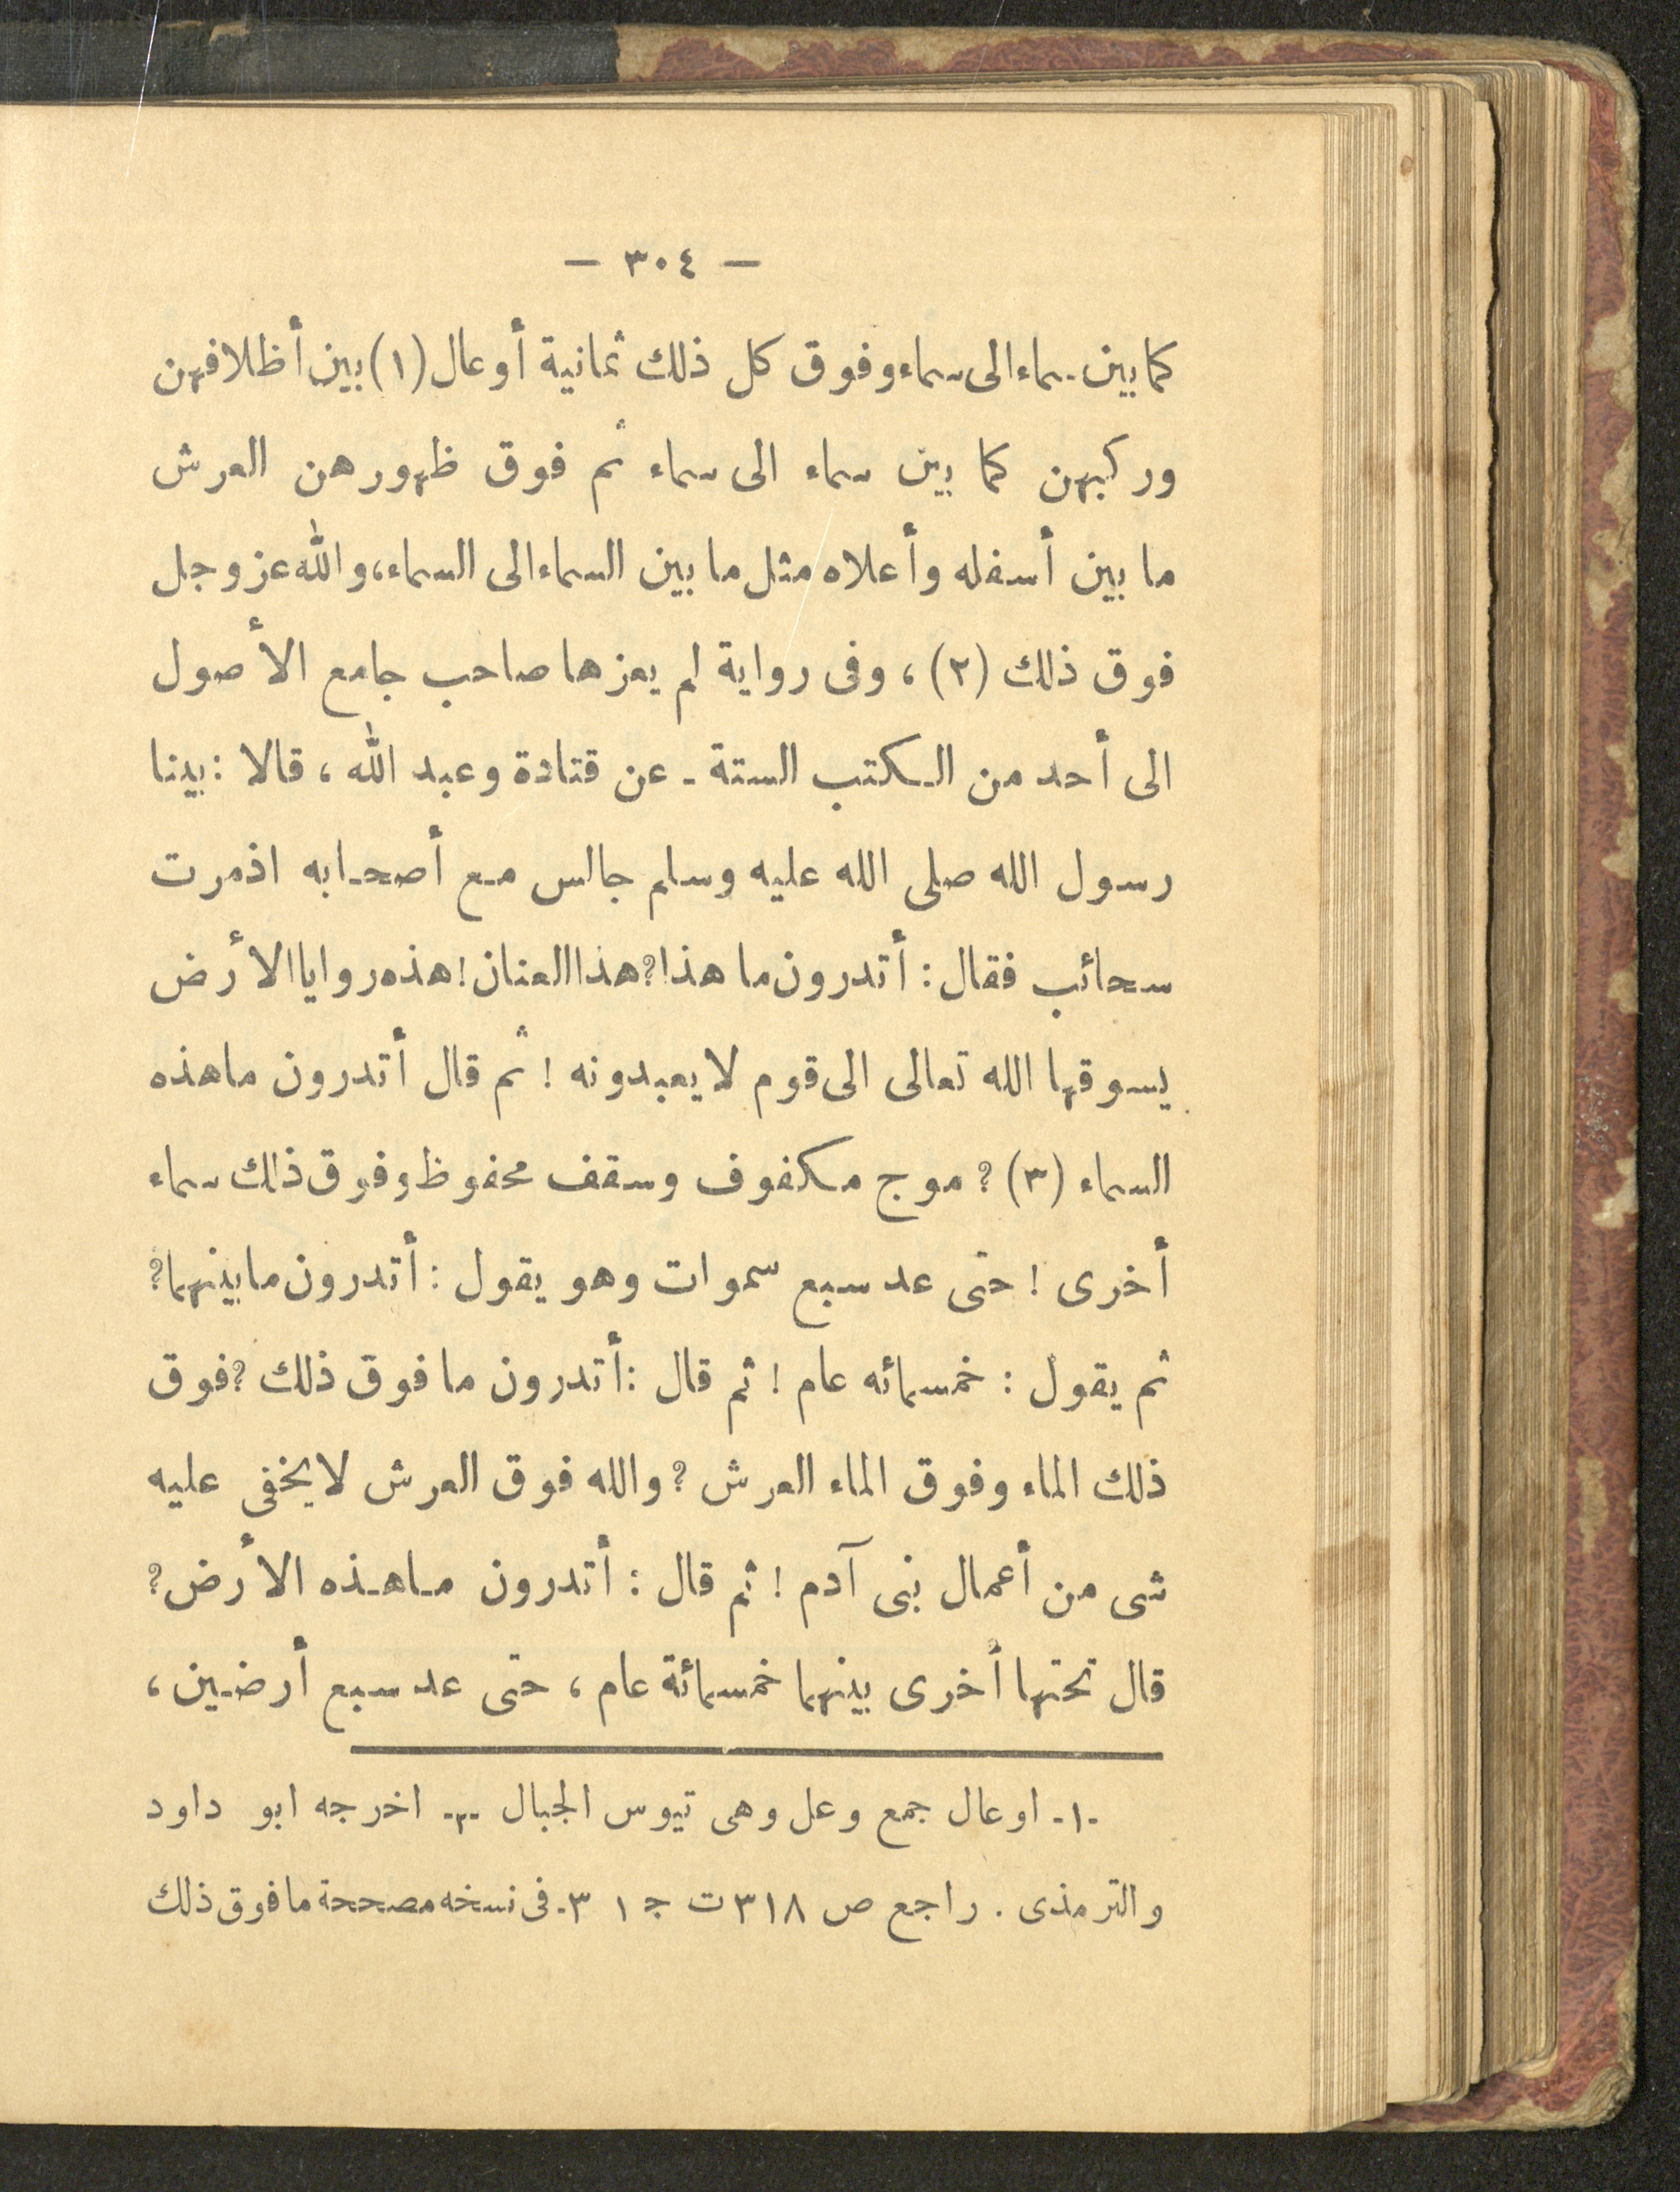 — ٣٠٤ —
كما بين سماء الى سماء وفوق كل ذلك ثمانية أوعال (١) بين أظلافهن
وركبهن كما بين سماء الى سماء ثم فوق ظهورهن العرش
ما بين أسفله وأعلاه مثل ما بين السماء الى السماء، والله عز وجل
فوق ذلك (٢)، وفى رواية لم يعزها صاحب جامع الأصول
الى أحد من الكتب الستة - عن قتادة وعبد الله، قالا: بينا
رسول الله صلى الله عليه وسلم جالس مع أصحابه اذ مرت
سحائب فقال: أتدرون ما هذا؟ هذا العنان! هذه روايا الأرض
يسوقها الله تعالى الى قوم لا يعبدونه! ثم قال أتدرون ما هذه
السماء (٣)؟ موج مكفوف وسقف محفوظ وفوق ذلك سماء
أخرى! حتى عد سبع سموات وهو يقول: أتدرون ما بينهما؟
ثم يقول: خمسمائه عام! ثم قال: أتدرون ما فوق ذلك؟ فوق
ذلك الماء وفوق الماء العرش؟ والله فوق العرش لا يخفى عليه
شى من أعمال بنى آدم! ثم قال: أتدرون ما هذه الأرض؟
قال تحتها أخرى بينهما خمسمائة عام، حتى عد سبع أرضين،
-١- اوعال جمع وعل وهى تيوس الجبال -٢- اخرجه ابو داود
والترمذى. راجع ص ٣١٨ ت ج ١ ٣- فى نسخه مصححة ما فوق ذلك